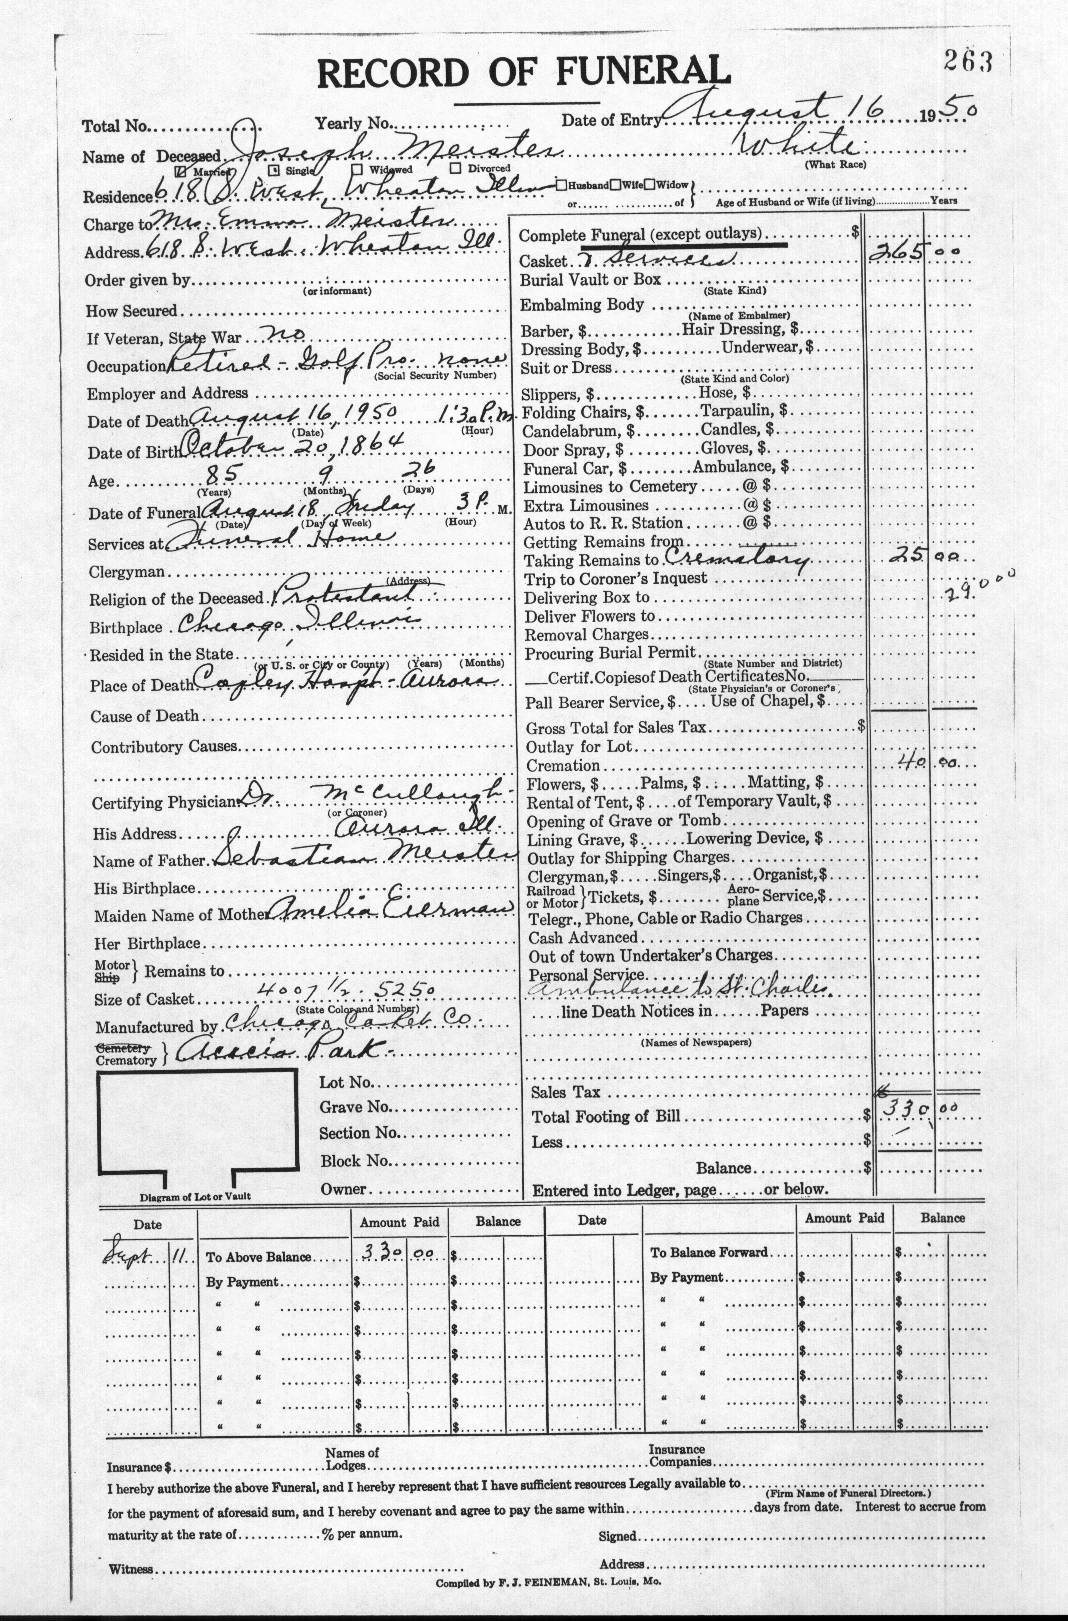 263
RECORD OF FUNERAL
Total No. Yearly No. Date of Entry August 16 1950
Name of Deceased Joseph Meister White
Married Single Widowed Divorced (What Race)
Residence 618 S. West, Wheaton Husband Wife Widow
or of Age of Husband or Wife (if living) Years
Charge to Mrs. Emma Meister
Address 618 S. West. Wheaton Ill.
Order given by
(or informant)
How Secured
If Veteran, State War no
Occupation Retired - Golf Pro. none
(Social Security Number)
Employer and Address
Date of Death August 16, 1950 1:30 P.M.
(Date) (Hour)
Date of Birth October 20, 1864
Age 85 9 26
(Years) (Months) (Days)
Date of Funeral August 18 Friday 3 P. M.
(Date) (Day of Week) (Hour)
Services at Funeral Home
Clergyman
(Address)
Religion of the Deceased Protestant
Birthplace Chicago, Illinois
Resided in the State
(or U. S. or City or County) (Years) (Months)
Place of Death Copley Hospt - Aurora
Cause of Death
Contributory Causes
Certifying Physician Dr. McCullough
(or Coroner)
His Address Aurora Ill.
Name of Father Sebastian Meister
His Birthplace
Maiden Name of Mother Amelia Eierman
Her Birthplace
Motor
Ship } Remains to
Size of Casket 4007 1/2 - 5250
(State Color and Number)
Manufactured by Chicago Casket Co.
Cemetery
Crematory } Acacia Park -
Lot No.
Grave No.
Section No.
Block No.
Owner
Diagram of Lot or Vault
Complete Funeral (except outlays) $
Casket & Services 265 00
Burial Vault or Box
(State Kind)
Embalming Body
(Name of Embalmer)
Barber, $ Hair Dressing, $
Dressing Body, $ Underwear, $
Suit or Dress
(State Kind and Color)
Slippers, $ Hose, $
Folding Chairs, $ Tarpaulin, $
Candelabrum, $ Candles, $
Door Spray, $ Gloves, $
Funeral Car, $ Ambulance, $
Limousines to Cemetery @ $
Extra Limousines @ $
Autos to R. R. Station @ $
Getting Remains from
Taking Remains to Crematory 25 00
Trip to Coroner's Inquest
Delivering Box to 29000
Deliver Flowers to
Removal Charges
Procuring Burial Permit
(State Number and District)
Certif. Copies of Death Certificates No.
(State Physician's or Coroner's)
Pall Bearer Service, $ Use of Chapel, $
Gross Total for Sales Tax $
Outlay for Lot
Cremation 40 00
Flowers, $ Palms, $ Matting, $
Rental of Tent, $ of Temporary Vault, $
Opening of Grave or Tomb
Lining Grave, $ Lowering Device, $
Outlay for Shipping Charges
Clergyman, $ Singers, $ Organist, $
Railroad or Motor } Tickets, $ Aeroplane Service, $
Telegr., Phone, Cable or Radio Charges
Cash Advanced
Out of town Undertaker's Charges
Personal Service
Ambulance to St. Charles
line Death Notices in Papers
(Names of Newspapers)
Sales Tax
Total Footing of Bill $ 330 00
Less $
Balance $
Entered into Ledger, page or below.
Date Amount Paid Balance Date Amount Paid Balance
Sept 11 To Above Balance 330 00 $ To Balance Forward $
By Payment $ $ By Payment $ $
" " $ $ " " $ $
" " $ $ " " $ $
" " $ $ " " $ $
" " $ $ " " $ $
" " $ $ " " $ $
" " $ $ " " $ $
Insurance $ Names of Lodges Insurance Companies
I hereby authorize the above Funeral, and I hereby represent that I have sufficient resources Legally available to
(Firm Name of Funeral Directors.)
for the payment of aforesaid sum, and I hereby covenant and agree to pay the same within days from date. Interest to accrue from
maturity at the rate of % per annum. Signed
Witness Address
Compiled by F. J. FEINEMAN, St. Louis, Mo.